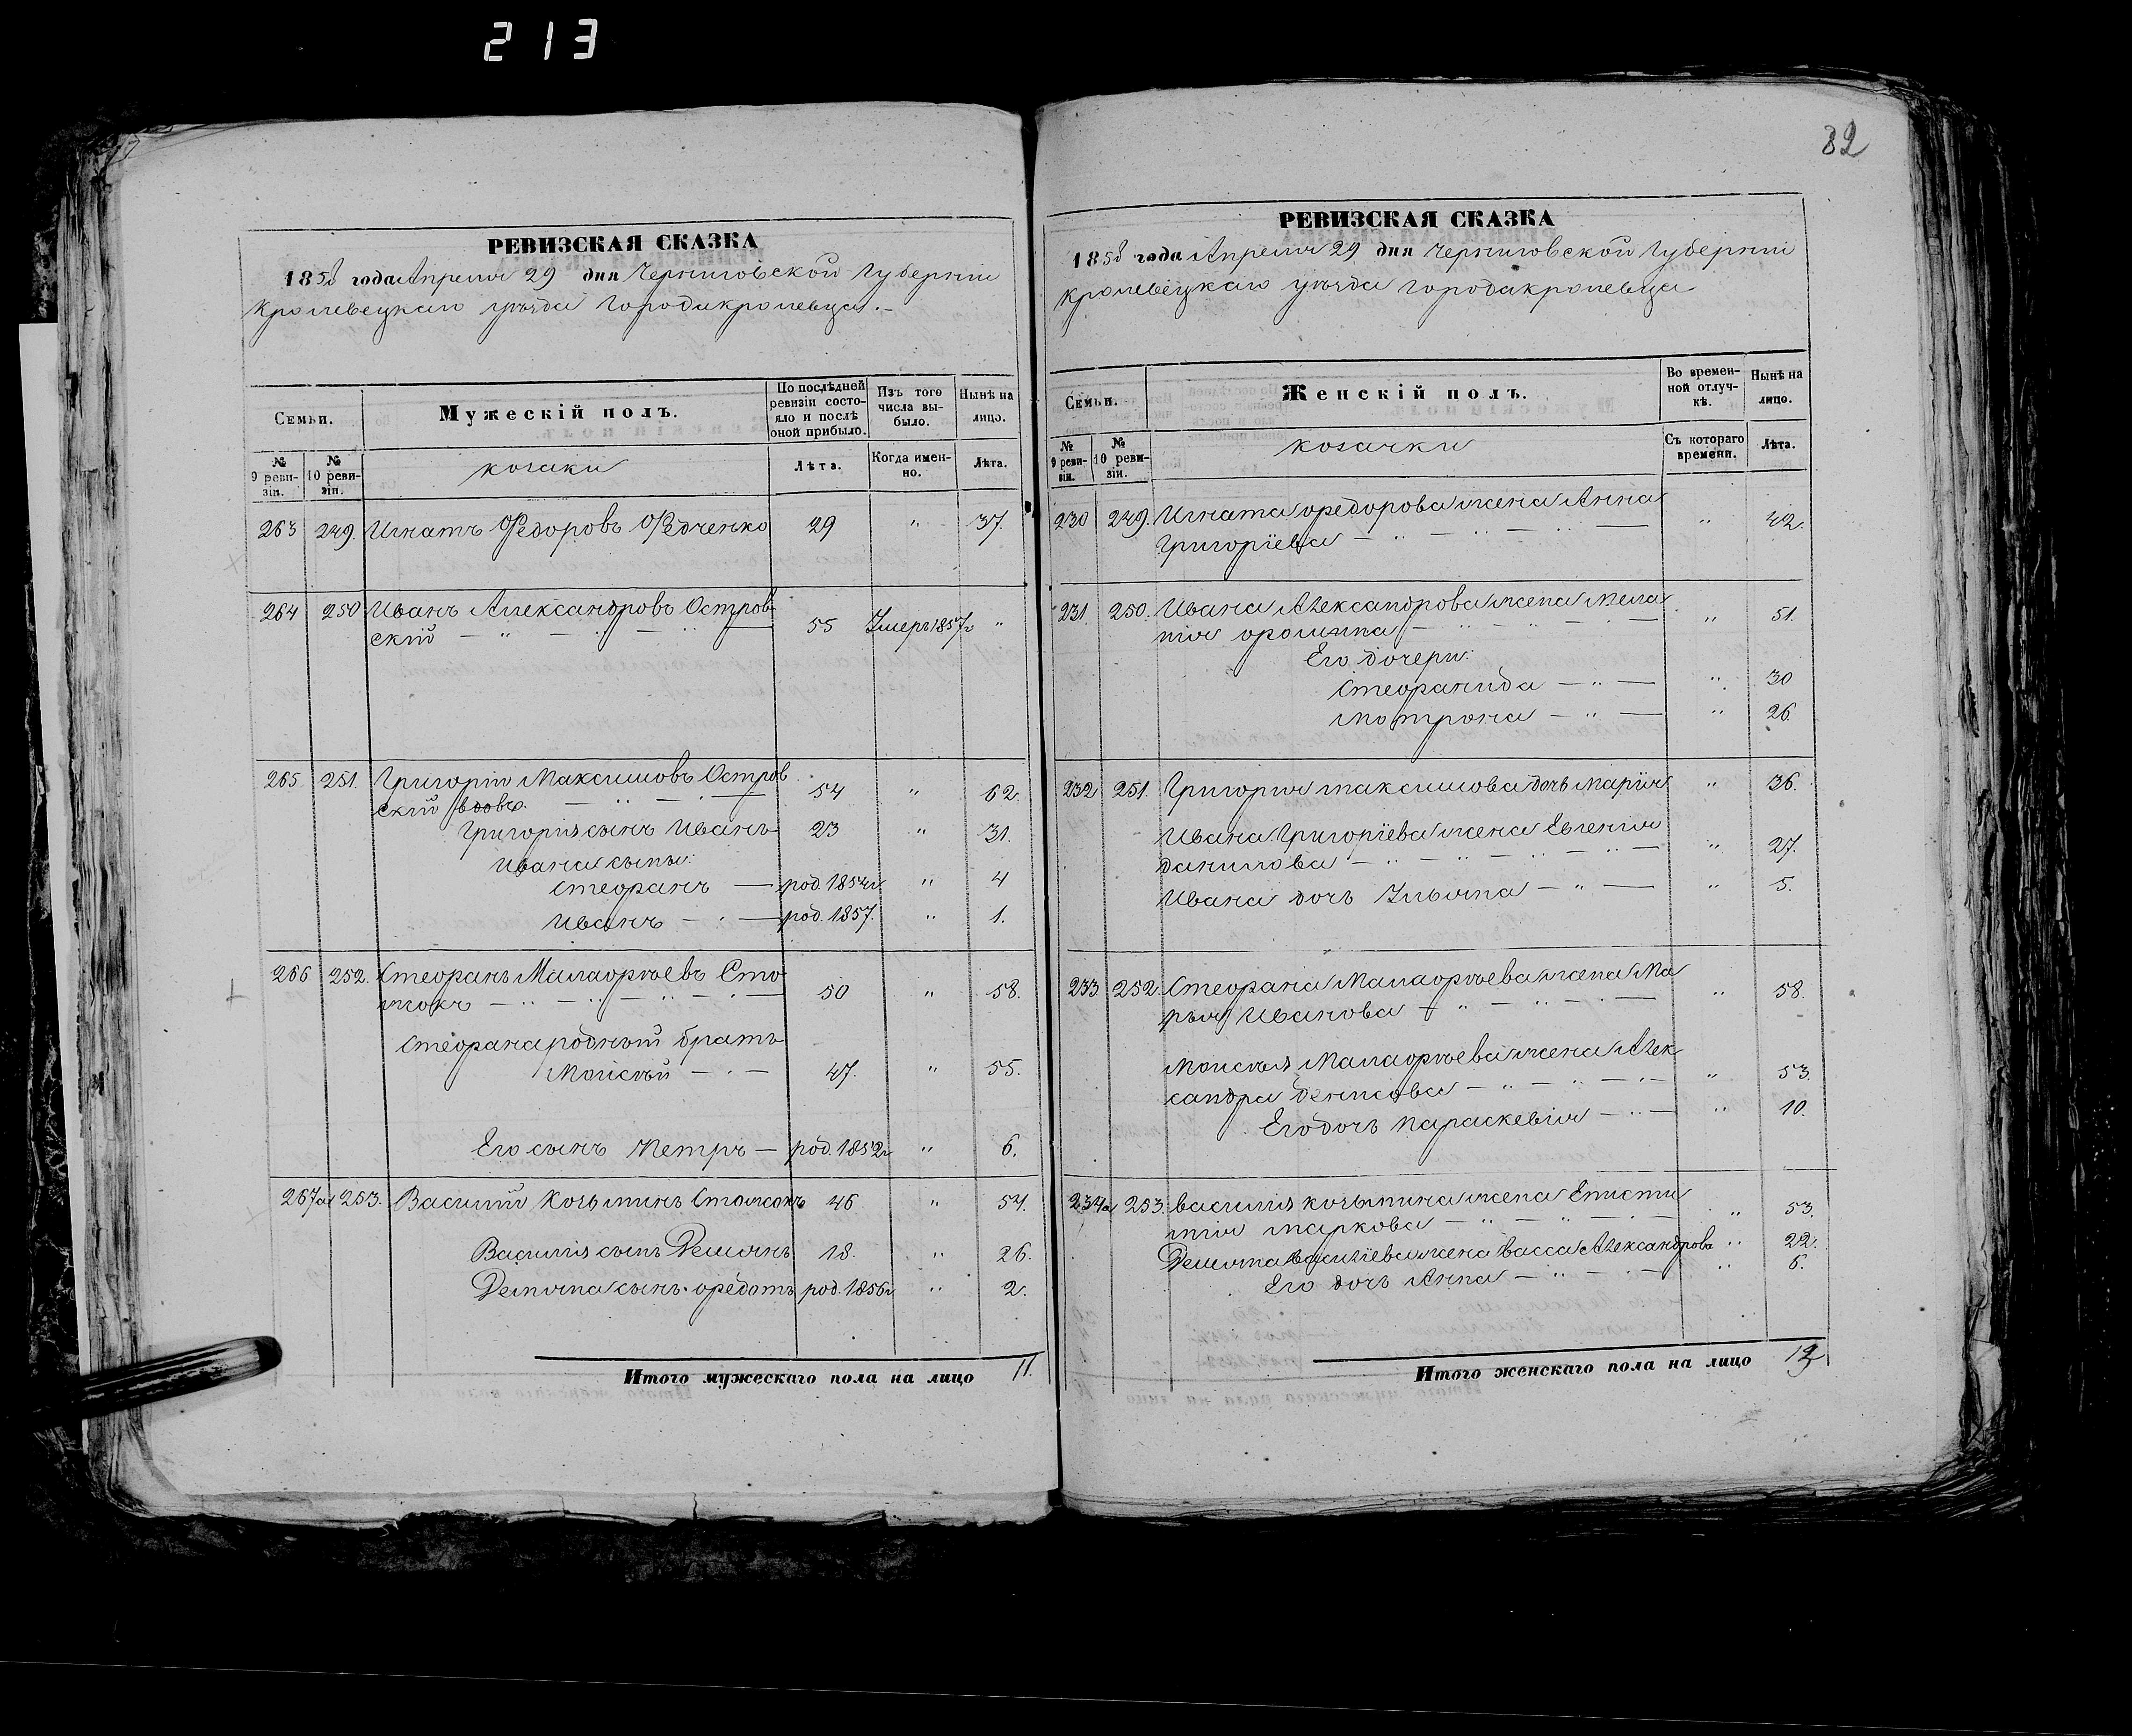 213
РЕВИЗСКАЯ СКАЗКА
1858 года Апреля 29 дня Черниговской Губерніи
Кролевецкаго уѣзда города Кролевца.
Семьи.
Мужескій полъ.
По послѣдней ревизіи состояло и послѣ оной прибыло.
Изъ того числа выбыло.
Нынѣ на лицо.
№ 9 ревизіи.
№ 10 ревизіи.
козаки
Лѣта.
Когда именно.
Лѣта.
263 249. Игнатъ Федоровъ Федченко 29 " 37.
264 250 Иванъ Александровъ Остров
скій 55 Умеръ 1857г "
265 251. Григорій Максимовъ Остров
скій вдовъ. 54 " 62.
Григорія сынъ Иванъ 23 " 31.
Ивана сыны:
Стефанъ род. 1854г " 4
Иванъ род. 1857. " 1.
266 252. Стефанъ Малафѣевъ Сто
50 " 58.
Стефана родный братъ
Моисѣй 47. " 55.
Его сынъ Петръ род. 1852г " 6.
267 253. Василій 46 " 54.
Василія сынъ Демянъ 18. " 26.
Демяна сынъ Федотъ род. 1856г " 2.
Итого мужескаго пола на лицо 11.
82
РЕВИЗСКАЯ СКАЗКА
1858 года Апреля 29 дня Черниговской Губерніи
Кролевецкаго уѣзда города Кролевца
Семьи.
Женскій полъ.
Во временной отлучкѣ.
Нынѣ на лицо.
№ 9 ревизіи.
№ 10 ревизіи.
козачки
Съ котораго времени.
Лѣта.
230 249. Игната Федорова жена Анна
Григоріева " 42.
231. 250. Ивана Александрова жена Мела
нія " 51.
Его дочери:
Стефанида " 30
Мотрона " 26.
232 251. Григорія Максимова дочь Марія " 36.
Ивана Григоріева жена Евгенія
Данилова " 27.
Ивана дочь Ульяна " 5.
233 252. Стефана Малафѣева жена Ма
рья Иванова " 58.
Моисѣя Малафѣева жена Алек
сандра Денисова " 53.
Его дочь Параскевія " 10.
234 253. Василія жена
Маркова " 53.
Демяна Василіева жена Васса Александрова " 22.
Его дочь Анна " 6.
Итого женскаго пола на лицо